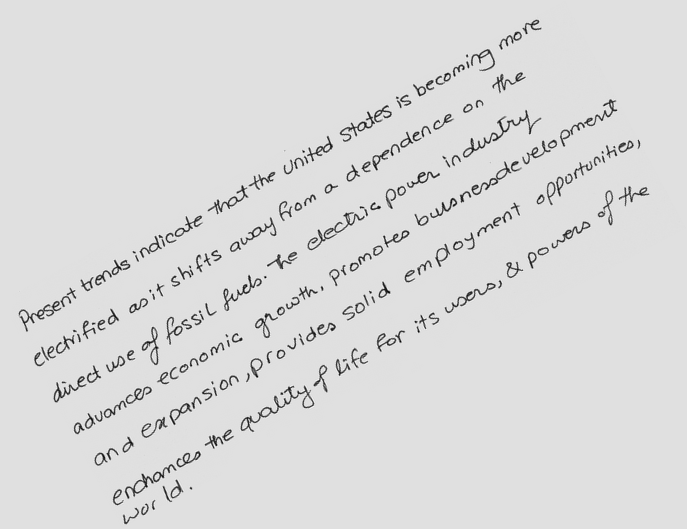 Present trends indicate that the United States is becoming more
electrified as it shifts away from a dependence on the
direct use of fossil fuels. The electric power industry
advances economic growth, promotes busnessdevelopment
and expansion, provides solid employment opportunities,
enchances the quality of life for its users, & powers of the
world.